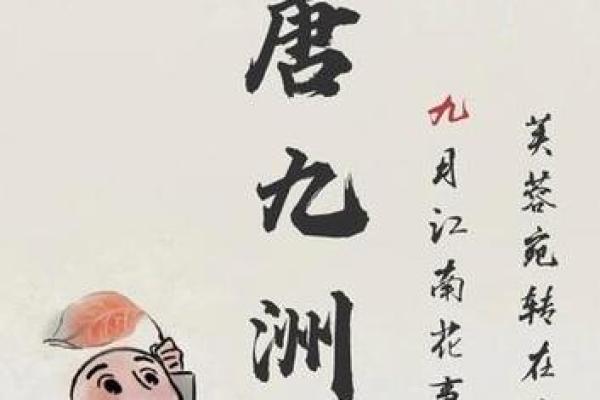 唐九洲
九月江南花事
芙蓉宛转在